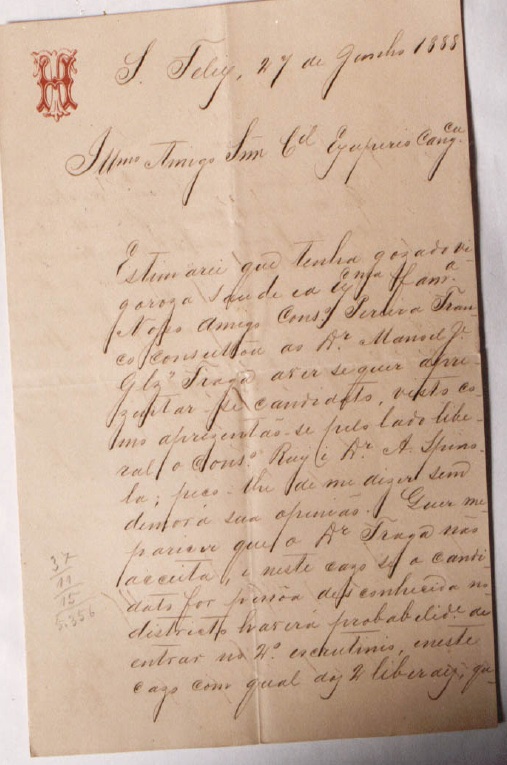 H
S. Felix, 27 de Junho 1888
Illmo Amigo Snr Cel Exuperio Cangca
Estimarei que tenha gozado vi-
goroza saude ea Exma Fama
Nosso amigo Consro Pereira Fran-
co consultou ao Dr. Manoel J.
Glz Fraga a ver se quer apre-
zentar-se candidato, visto co-
mo aprezentão-se pelo lado libe-
ral o Conso Ruy e Dr. A. Spino-
la; peço-lhe de me dizer sem
demora sua openião. Quer me
parecer que o Dr Fraga não
acceita, e neste cazo se o candi
dato for pessôa desconhecida no
districto haverá probabelide de
entrar no 2º escrutinio, e neste
cazo com qual dos 2 liberaes, qu-
37
11
15
5.356